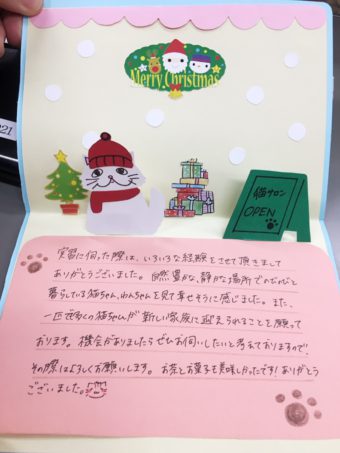 Merry Christmas
221
猫サロン
OPEN
実習に伺った際は、いろいろな経験をさせて頂きまして
ありがとうございました。自然豊かな、静かな場所でのびのびと
暮らしている猫ちゃん、わんちゃんを見て幸せそうに感じました。また、
一匹でも多くの猫ちゃんが新しい家族に迎えられることを願って
おります。機会がありましたらぜひお伺いしたいと考えておりますので!
その際はよろしくお願いします。お茶とお菓子も美味しかったです!ありがとう
ございました。